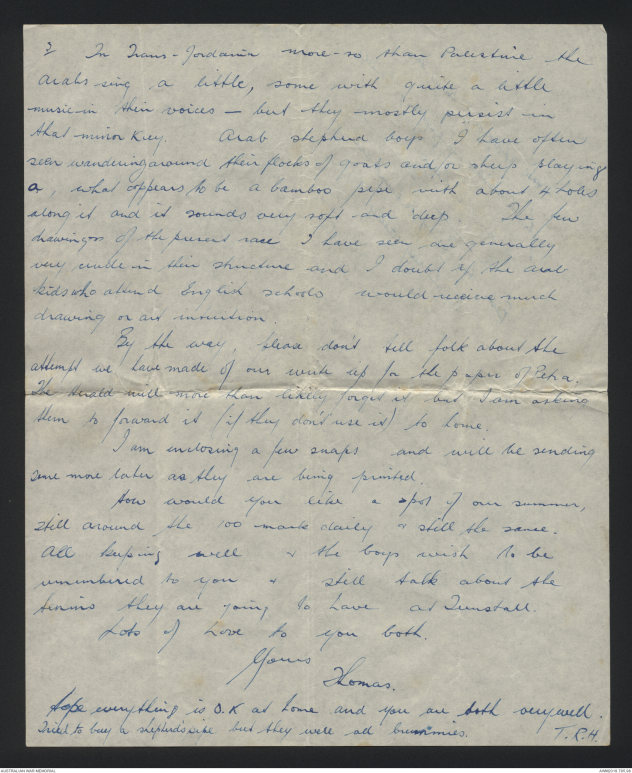 3 In Trans-Jordania more-so than Palestine the
Arabs sing a little, some with quite a little
music in their voices — but they mostly persist in
that minor key. Arab shepherd boys I have often
seen wandering around their flocks of goats and/or sheep playing
a, what appears, to be a bamboo pipe with about 4 holes
along it and it sounds very soft and deep. The few
drawings of the present race I have seen are generally
very crude in their structure and I doubt if the arab
kids who attend English schools would receive much
drawing or art intuition.
By the way, please don't tell folk about the
attempt we have made of our write up for the paper of Petra.
The Herald will more than likely forget it but I am asking
them to forward it (if they don't use it) to home.
I am enclosing a few snaps and will be sending
some more later as they are being printed.
How would you like a spot of our summer,
still around the 100 mark daily & still the same.
All keeping well & the boys wish to be
remembered to you & still talk about the
they are going to have at Tunstall.
Lots of Love to you both.
Yours
Thomas.
Hope everything is O.K at home and you are both very well.
Tried to buy a shepherds pipe but they were all brummies. T.R.H.
AUSTRALIAN WAR MEMORIAL